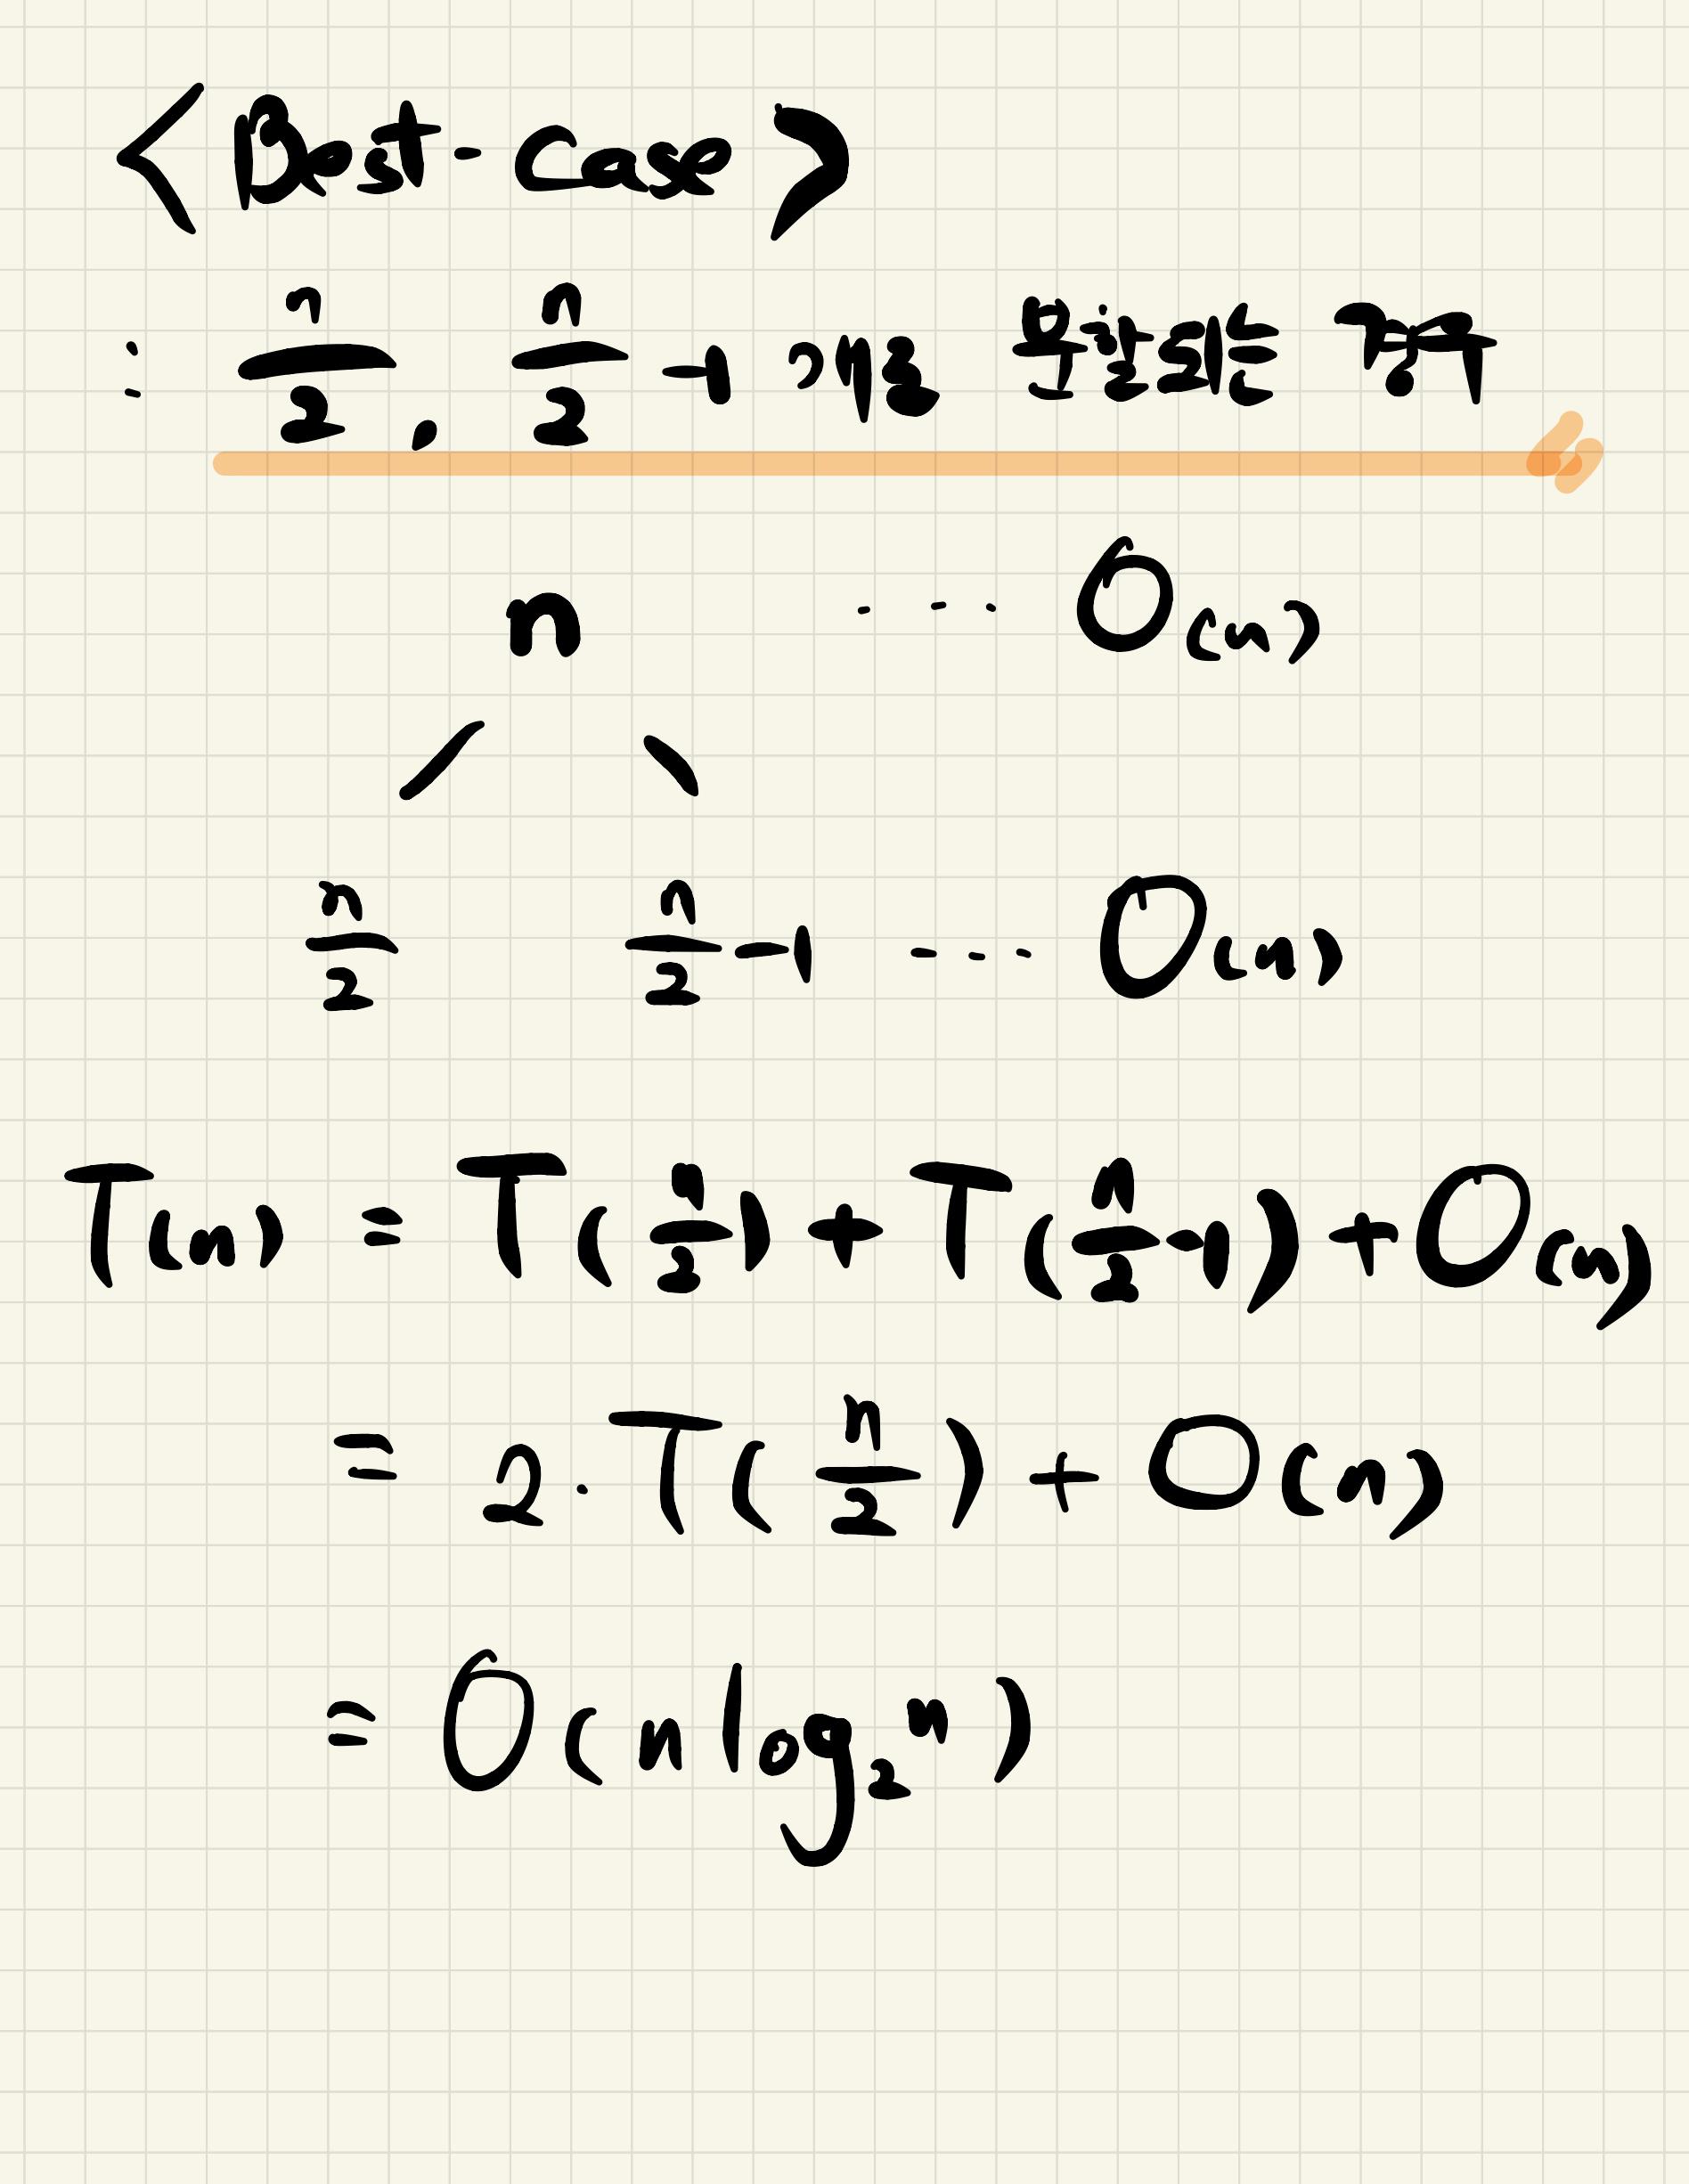 <Best-case>
: n/2, n/2-1 개로 분할되는 경우
n ... O(n)
n/2 n/2-1 ... O(n)
T(n) = T(n/2) + T(n/2-1) + O(n)
= 2·T(n/2) + O(n)
= O(n log₂ n)